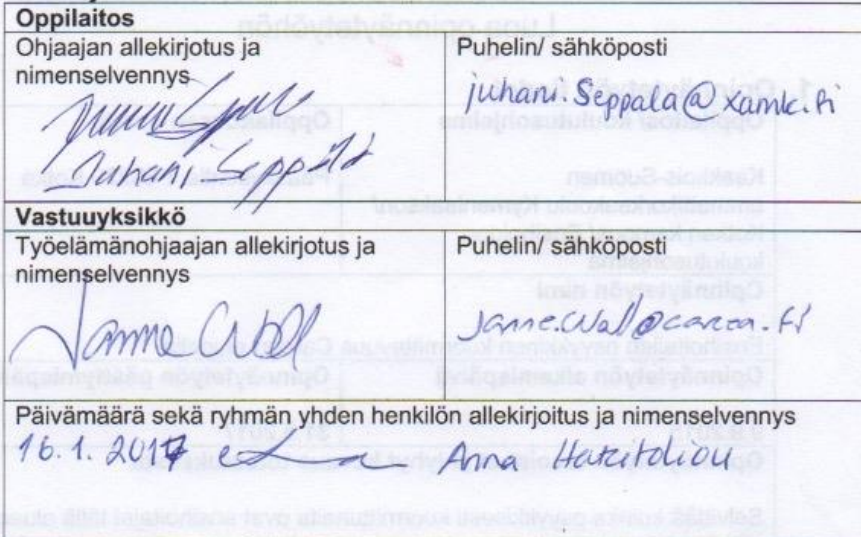 Oppilaitos
Ohjaajan allekirjotus ja
nimenselvennys
Puhelin/ sähköposti
Juhani Seppälä
juhani.Seppala@xamk.fi
Vastuuyksikkö
Työelämänohjaajan allekirjotus ja
nimenselvennys
Puhelin/ sähköposti
Janne Wall
Janne.Wall@carea.fi
Päivämäärä sekä ryhmän yhden henkilön allekirjoitus ja nimenselvennys
16.1.2017 Anna